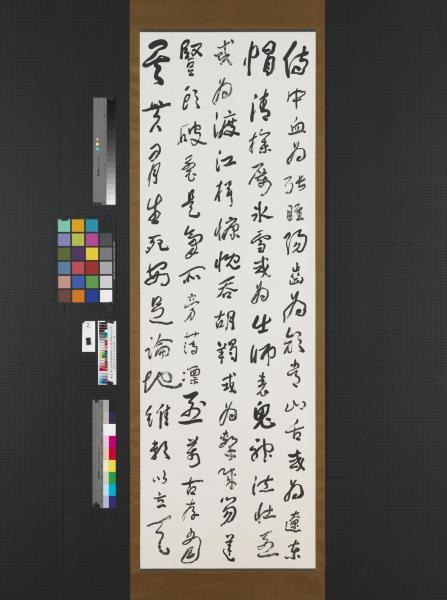 侍中血為張睢陽齒為顏常山舌或為遼東
帽清操厲冰雪或為出師表鬼神泣壯烈
或為渡江楫慷慨吞胡羯或為擊賊笏逆
豎頭破裂是氣所旁薄凛烈萬古存當
其貫日月生死安足論地維賴以立天